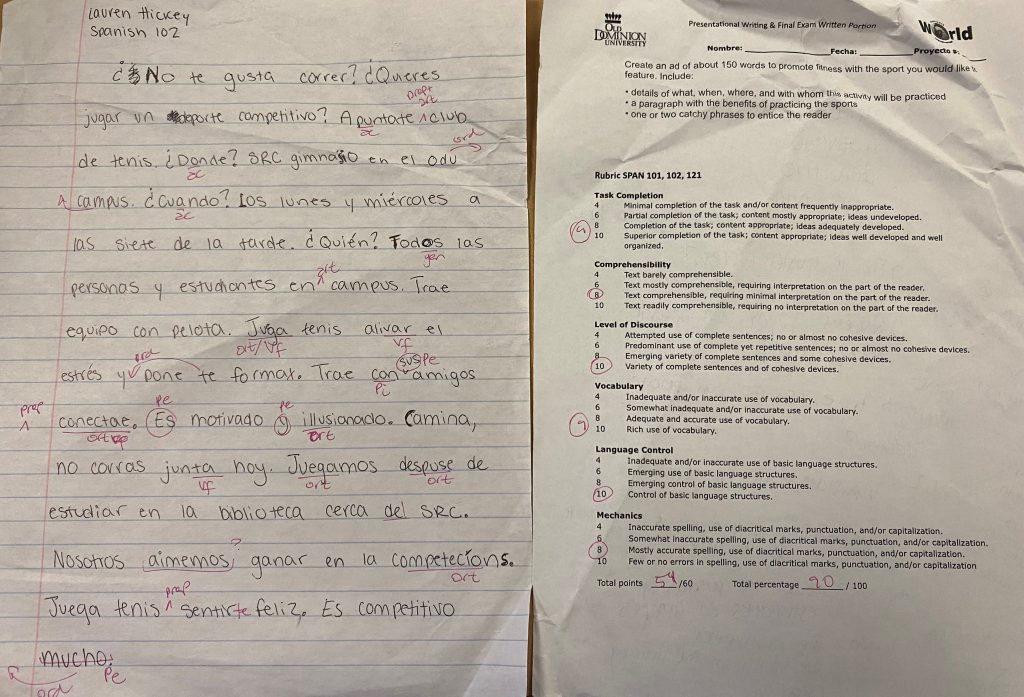 Lauren Hickey
Spanish 102
¿No te gusta correr? ¿Queres
prep+
art
jugar un deporte competitivo? Apuntate ^ club
ac
ord
de tenis. ¿Donde? SRC gimnasio en el odu
ac
campus. ¿Cuando? Los lunes y miércoles a
ac
las siete de la tarde. ¿Quién? Todos las
gen
art
personas y estudiantes en ^ campus. Trae
equipo con pelota. Juga tenis alivar el
ort/vf
vf
ord
sus pe
estrés y pone te formax. Trae con amigos
pi
prep
pe
pe
^ conectae. Es motivado y illusionado. Camina,
ort
ort
no corras junta hoy. Juegamos despuse de
vf
ort
ort
estudiar en la biblioteca cerca del SRC.
?
Nosotros aimemos ganar en la competecíons.
ort
prep
Juega tenis ^ sentirte feliz. Es competitivo
mucho.
pe
ord
OLD DOMINION UNIVERSITY
Presentational Writing & Final Exam Written Portion
World
Nombre: Fecha: Proyecto #:
Create an ad of about 150 words to promote fitness with the sport you would like
feature. Include:
• details of what, when, where, and with whom this activity will be practiced
• a paragraph with the benefits of practicing the sports
• one or two catchy phrases to entice the reader
Rubric SPAN 101, 102, 121
Task Completion
4 Minimal completion of the task and/or content frequently inappropriate.
6 Partial completion of the task; content mostly appropriate; ideas undeveloped.
8 Completion of the task; content appropriate; ideas adequately developed.
9
10 Superior completion of the task; content appropriate; ideas well developed and well
organized.
Comprehensibility
4 Text barely comprehensible.
6 Text mostly comprehensible, requiring interpretation on the part of the reader.
8 Text comprehensible, requiring minimal interpretation on the part of the reader.
10 Text readily comprehensible, requiring no interpretation on the part of the reader.
Level of Discourse
4 Attempted use of complete sentences; no or almost no cohesive devices.
6 Predominant use of complete yet repetitive sentences; no or almost no cohesive devices.
8 Emerging variety of complete sentences and some cohesive devices.
10 Variety of complete sentences and of cohesive devices.
Vocabulary
4 Inadequate and/or inaccurate use of vocabulary.
6 Somewhat inadequate and/or inaccurate use of vocabulary.
8 Adequate and accurate use of vocabulary.
9
10 Rich use of vocabulary.
Language Control
4 Inadequate and/or inaccurate use of basic language structures.
6 Emerging use of basic language structures.
8 Emerging control of basic language structures.
10 Control of basic language structures.
Mechanics
4 Inaccurate spelling, use of diacritical marks, punctuation, and/or capitalization.
6 Somewhat inaccurate spelling, use of diacritical marks, punctuation, and/or capitalization.
8 Mostly accurate spelling, use of diacritical marks, punctuation, and/or capitalization.
10 Few or no errors in spelling, use of diacritical marks, punctuation, and/or capitalization
Total points 54/60 Total percentage 90 / 100